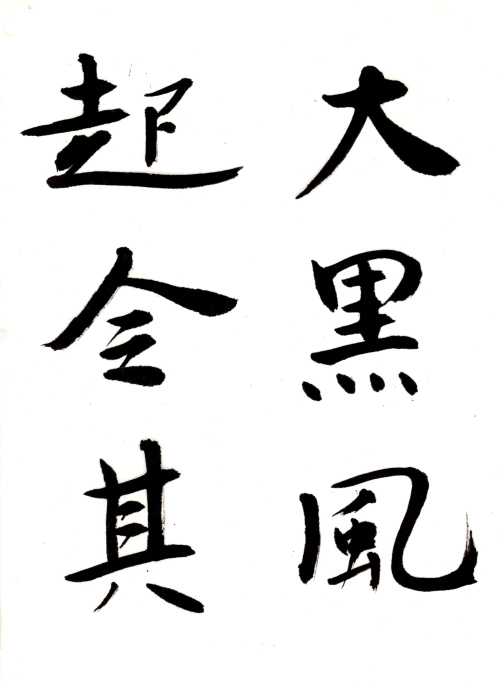 大黒風
起令其